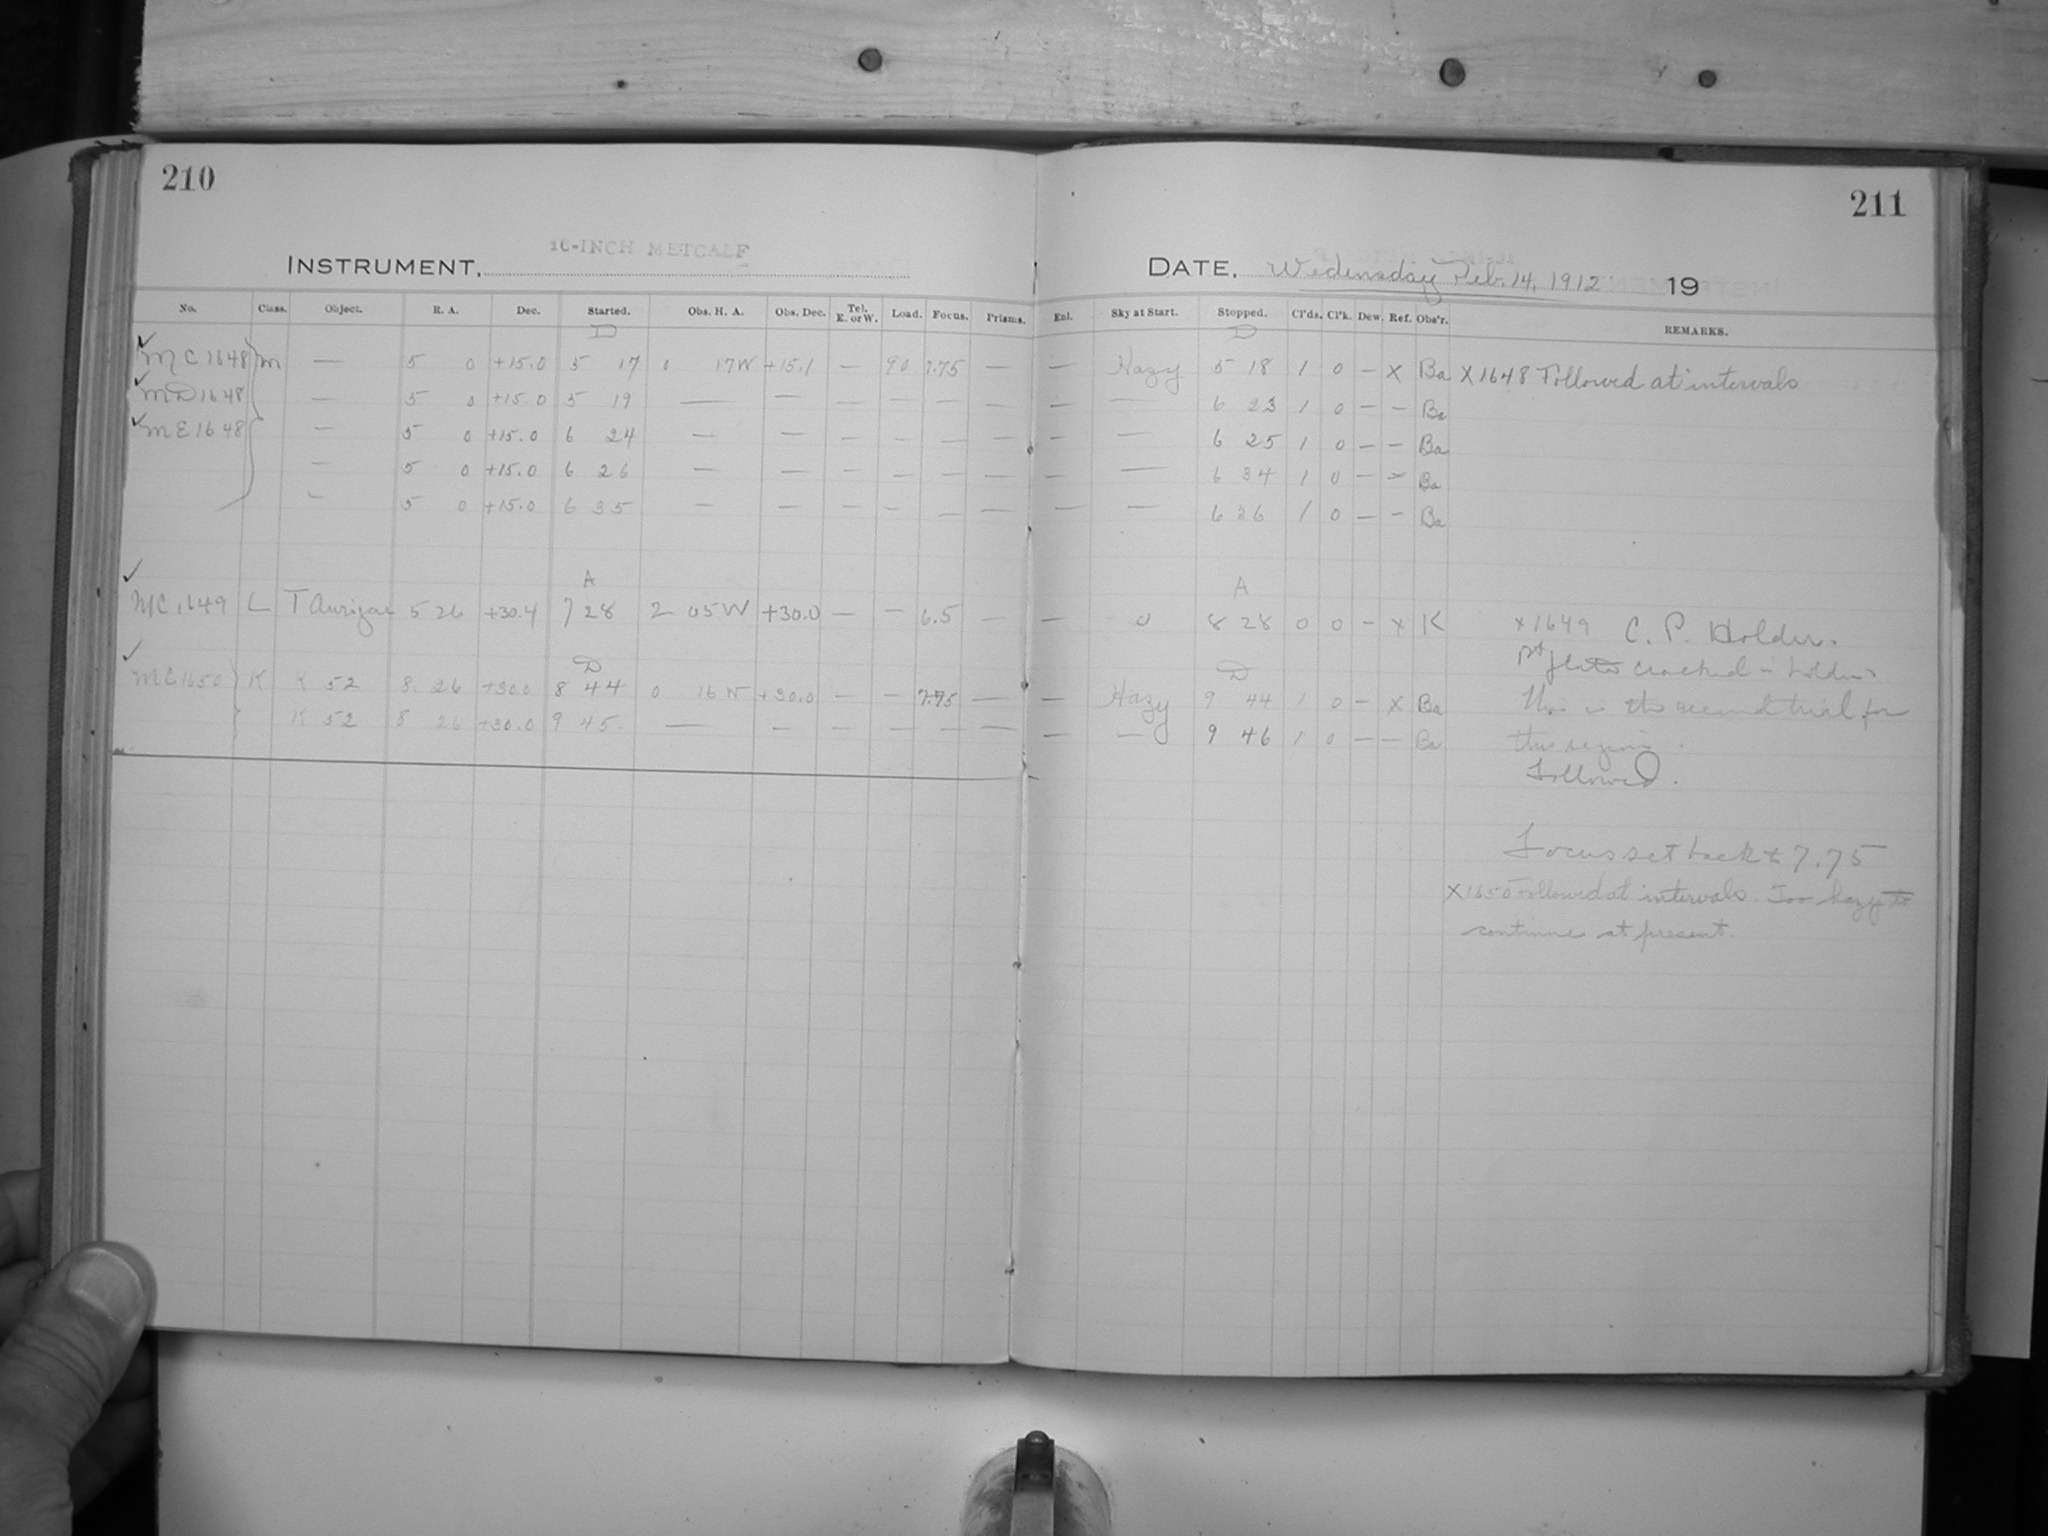 210
211
16-INCH METCALF
INSTRUMENT,
DATE, Wednesday Feb. 14, 1912 19
No. Class. Object. R. A. Dec. Started. Obs. H. A. Obs. Dec. Tel. E. or W. Load. Focus. Prisms. Enl. Sky at Start. Stopped. Cl'ds. Cl'k. Dew. Ref. Obs'r. REMARKS.
D D
MC1648 M — 5 0 +15.0 5 17 0 17W +15.1 — 90 7.75 — — Hazy 5 18 1 0 — X Ba X1648 Followed at intervals
MD1648 — 5 0 +15.0 5 19 — — — — — — — — 6 23 1 0 — — Ba
ME1648 — 5 0 +15.0 6 24 — — — — — — — — 6 25 1 0 — — Ba
— 5 0 +15.0 6 26 — — — — — — — — 6 34 1 0 — — Ba
— 5 0 +15.0 6 35 — — — — — — — — 6 36 1 0 — — Ba
A A
MC1649 L T Aurigae 5 26 +30.4 7 28 2 05W +30.0 — — 6.5 — — 0 8 28 0 0 — x K x1649 C. P. Holder.
cracked in holder
D D
MC1650 K K 52 8 26 +30.0 8 44 0 16W +30.0 — — 7.75 — — Hazy 9 44 1 0 — X Ba This is the second trial for
K 52 8 26 +30.0 9 45 — — — — — — — — 9 46 1 0 — — Ba this region.
Followed.
Focus set back to 7.75
X1650 Followed at intervals. Too hazy to
continue at present.